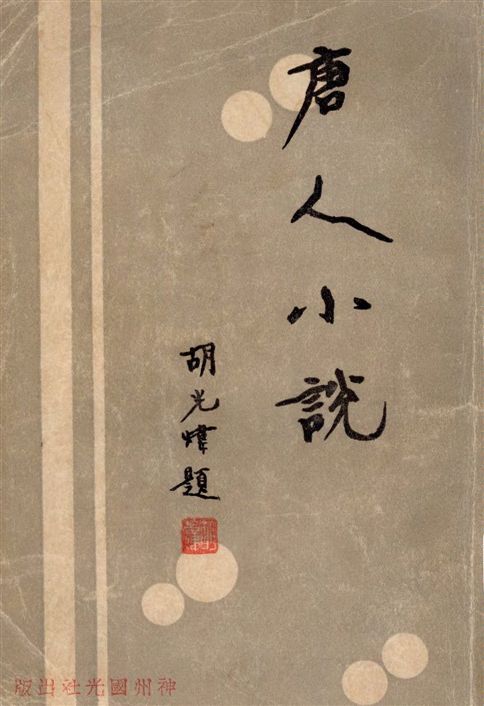 唐人小說
胡光煒題
神州國光社出版